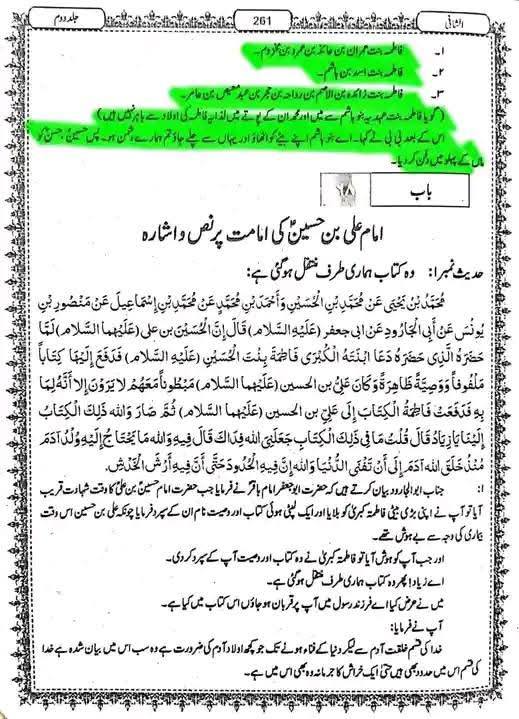 جلد دوم 261 الشافی
۱۔ فاطمہ بنت عمران بن عائذ بن عمرو بن مخزوم۔
۲۔ فاطمہ بنت اسد بن ہاشم۔
۳۔ فاطمہ بنت زائدہ بن الاصم بن رواحہ بن حجر بن عبد معیص بن عامر۔
(گویا فاطمہ بنت عہدیہ بنو ہاشم سے ہیں اور محمد ان کے پوتے ہیں لہٰذا یہ فاطمہ کی اولاد سے باہر نہیں ہیں)
اس کے بعد بی بی نے کہا۔ اے بنو ہاشم اپنے بیٹے کو اٹھاؤ اور یہاں سے چلے جاؤ تم ہمارے دشمن ہو۔ پس حسینؑ، حسنؑ کو
ماں کے پہلو میں دفن کر دیا۔
باب ۶۸
امام علی بن حسینؑ کی امامت پر نص و اشارہ
حدیث نمبر ۱: وہ کتاب ہماری طرف منتقل ہو گئی ہے:
مُحَمَّدُ بْنُ يَحْيَى عَنْ مُحَمَّدِ بْنِ الْحُسَيْنِ وَأَحْمَدَ بْنِ مُحَمَّدٍ عَنْ مُحَمَّدِ بْنِ إِسْمَاعِيلَ عَنْ مَنْصُورِ بْنِ
يُونُسَ عَنْ أَبِي الْجَارُودِ عَنْ ابى جعفر (عَلَيْهِ السَّلام) قَالَ إِنَّ الْحُسَيْنَ بن على (عَلَيْهِما السلام) لَمَّا
حَضَرَهُ الَّذِى حَضَرَهُ دَعَا ابْنَتَهُ الْكُبْرَى فَاطِمَةَ بِنْتَ الْحُسَيْنِ (عَلَيْهِ السَّلام) فَدَفَعَ إِلَيْهَا كِتَاباً
مَلْفُوفاً وَوَصِيَّةً ظَاهِرَةً وَكَانَ عَلِىُّ بْنُ الحسين (عَلَيْهِما السَّلام) مَبْطُوناً مَعَهُمْ لا يَرَوْنَ إِلا أَنَّهُ لِمَا
بِهِ فَدَفَعَتْ فَاطِمَةُ الْكِتَابَ إِلَى عَلِيِّ بْنِ الحسين (عَلَيْهِما السَّلام) ثُمَّ صَارَ وَالله ذَلِكَ الْكِتَابُ
إِلَيْنَا يَا زِيَادُ قَالَ قُلْتُ مَا فِى ذَلِكَ الْكِتَابِ جَعَلَنِىَ الله فِدَاكَ قَالَ فِيهِ وَالله مَا يَحْتَاجُ إِلَيْهِ وُلْدُ آدَمَ
مُنْذُ خَلَقَ الله آدَمَ إِلَى أَنْ تَفْنَى الدُّنْيَا وَالله إِنَّ فِيهِ الْحُدُودَ حَتَّى أَنَّ فِيهِ أَرْشَ الْخَدْشِ.
۱: جناب ابوالجارود بیان کرتے ہیں کہ حضرت ابو جعفر امام باقرؑ نے فرمایا جب حضرت امام حسینؑ بن علیؑ کا وقت شہادت قریب
آیا تو آپ نے اپنی بڑی بیٹی فاطمہ کبریٰ کو بلایا اور ایک لپٹی ہوئی کتاب اور وصیت نام ان کے سپرد فرمایا چونکہ علی بن حسین اس وقت
بیماری کی وجہ سے بے ہوش تھے۔
اور جب آپ کو ہوش آیا تو فاطمہ کبریٰ نے وہ کتاب اور وصیت آپ کے سپرد کر دی۔
اے زیاد! پھر وہ کتاب ہماری طرف منتقل ہو گئی ہے۔
میں نے عرض کیا اے فرزند رسول میں آپ پر قربان ہو جاؤں اس کتاب میں کیا ہے۔
آپ نے فرمایا:
خدا کی قسم خلقت آدم سے لیکر دنیا کے فناء ہونے تک جو کچھ اولاد آدم کی ضرورت ہے وہ سب اس میں بیان شدہ ہے خدا
کی قسم اس میں حدود بھی ہیں حتیٰ ایک خراش کا جرمانہ وہ بھی اس میں ہے۔